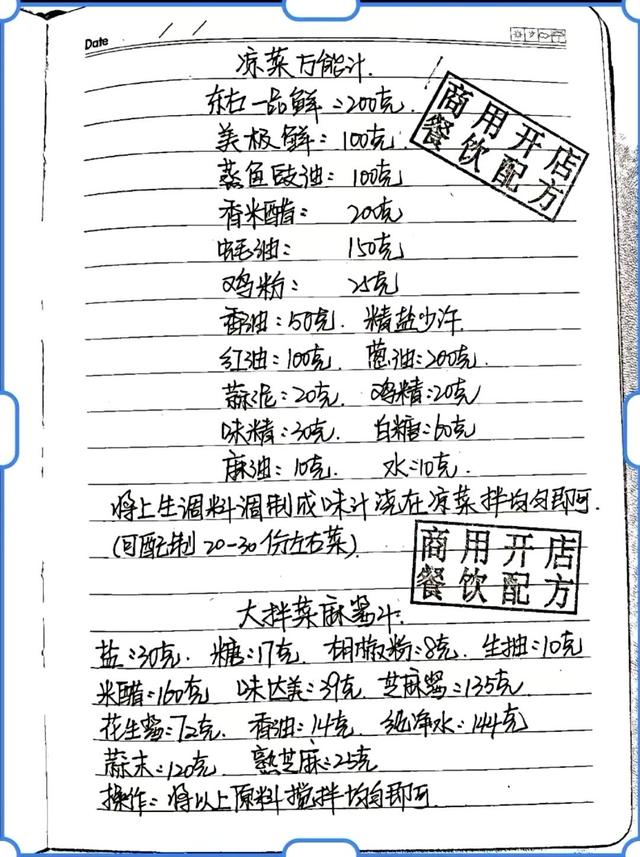 Date
凉菜万能汁.
东古一品鲜:200克.
美极鲜:100克.
蒸鱼豉油:100克
香米醋: 200克
蚝油: 150克
鸡粉: 25克
香油:50克. 精盐少许
红油:100克 葱油:200克
蒜泥:20克. 鸡精:20克
味精:30克. 白糖:60克
麻油:10克. 水:10克.
将上生调料调制成味汁浇在凉菜拌均匀即可.
(可配制20-30份左右菜)
商用开店
餐饮配方
商用开店
餐饮配方
大拌菜麻酱汁.
盐:30克. 糖:17克. 胡椒粉:8克. 生抽:10克
米醋:160克 味达美:39克. 芝麻酱:135克
花生酱:72克. 香油:14克. 纯净水:144克
蒜末:120克 熟芝麻:25克
操作: 将以上原料搅拌均匀即可.